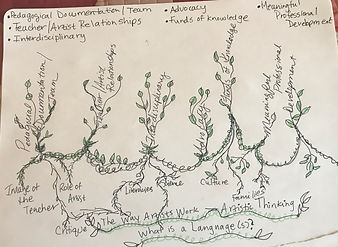 • Pedagogical Documentation/Team
• Teacher/Artist Relationships
• Interdisciplinary
• Advocacy
• Funds of knowledge
• Meaningful
Professional
Development
Pedagogical
Documentation
Team
Teacher/Artist
Relationships
Interdisciplinary
Advocacy
Funds of Knowledge
Meaningful
Professional
Development
Image of
the
Teacher
Role of
Artist
Critique
Culture
Families
The Way Artists Work
Artistic Thinking
What is a Language(s)?